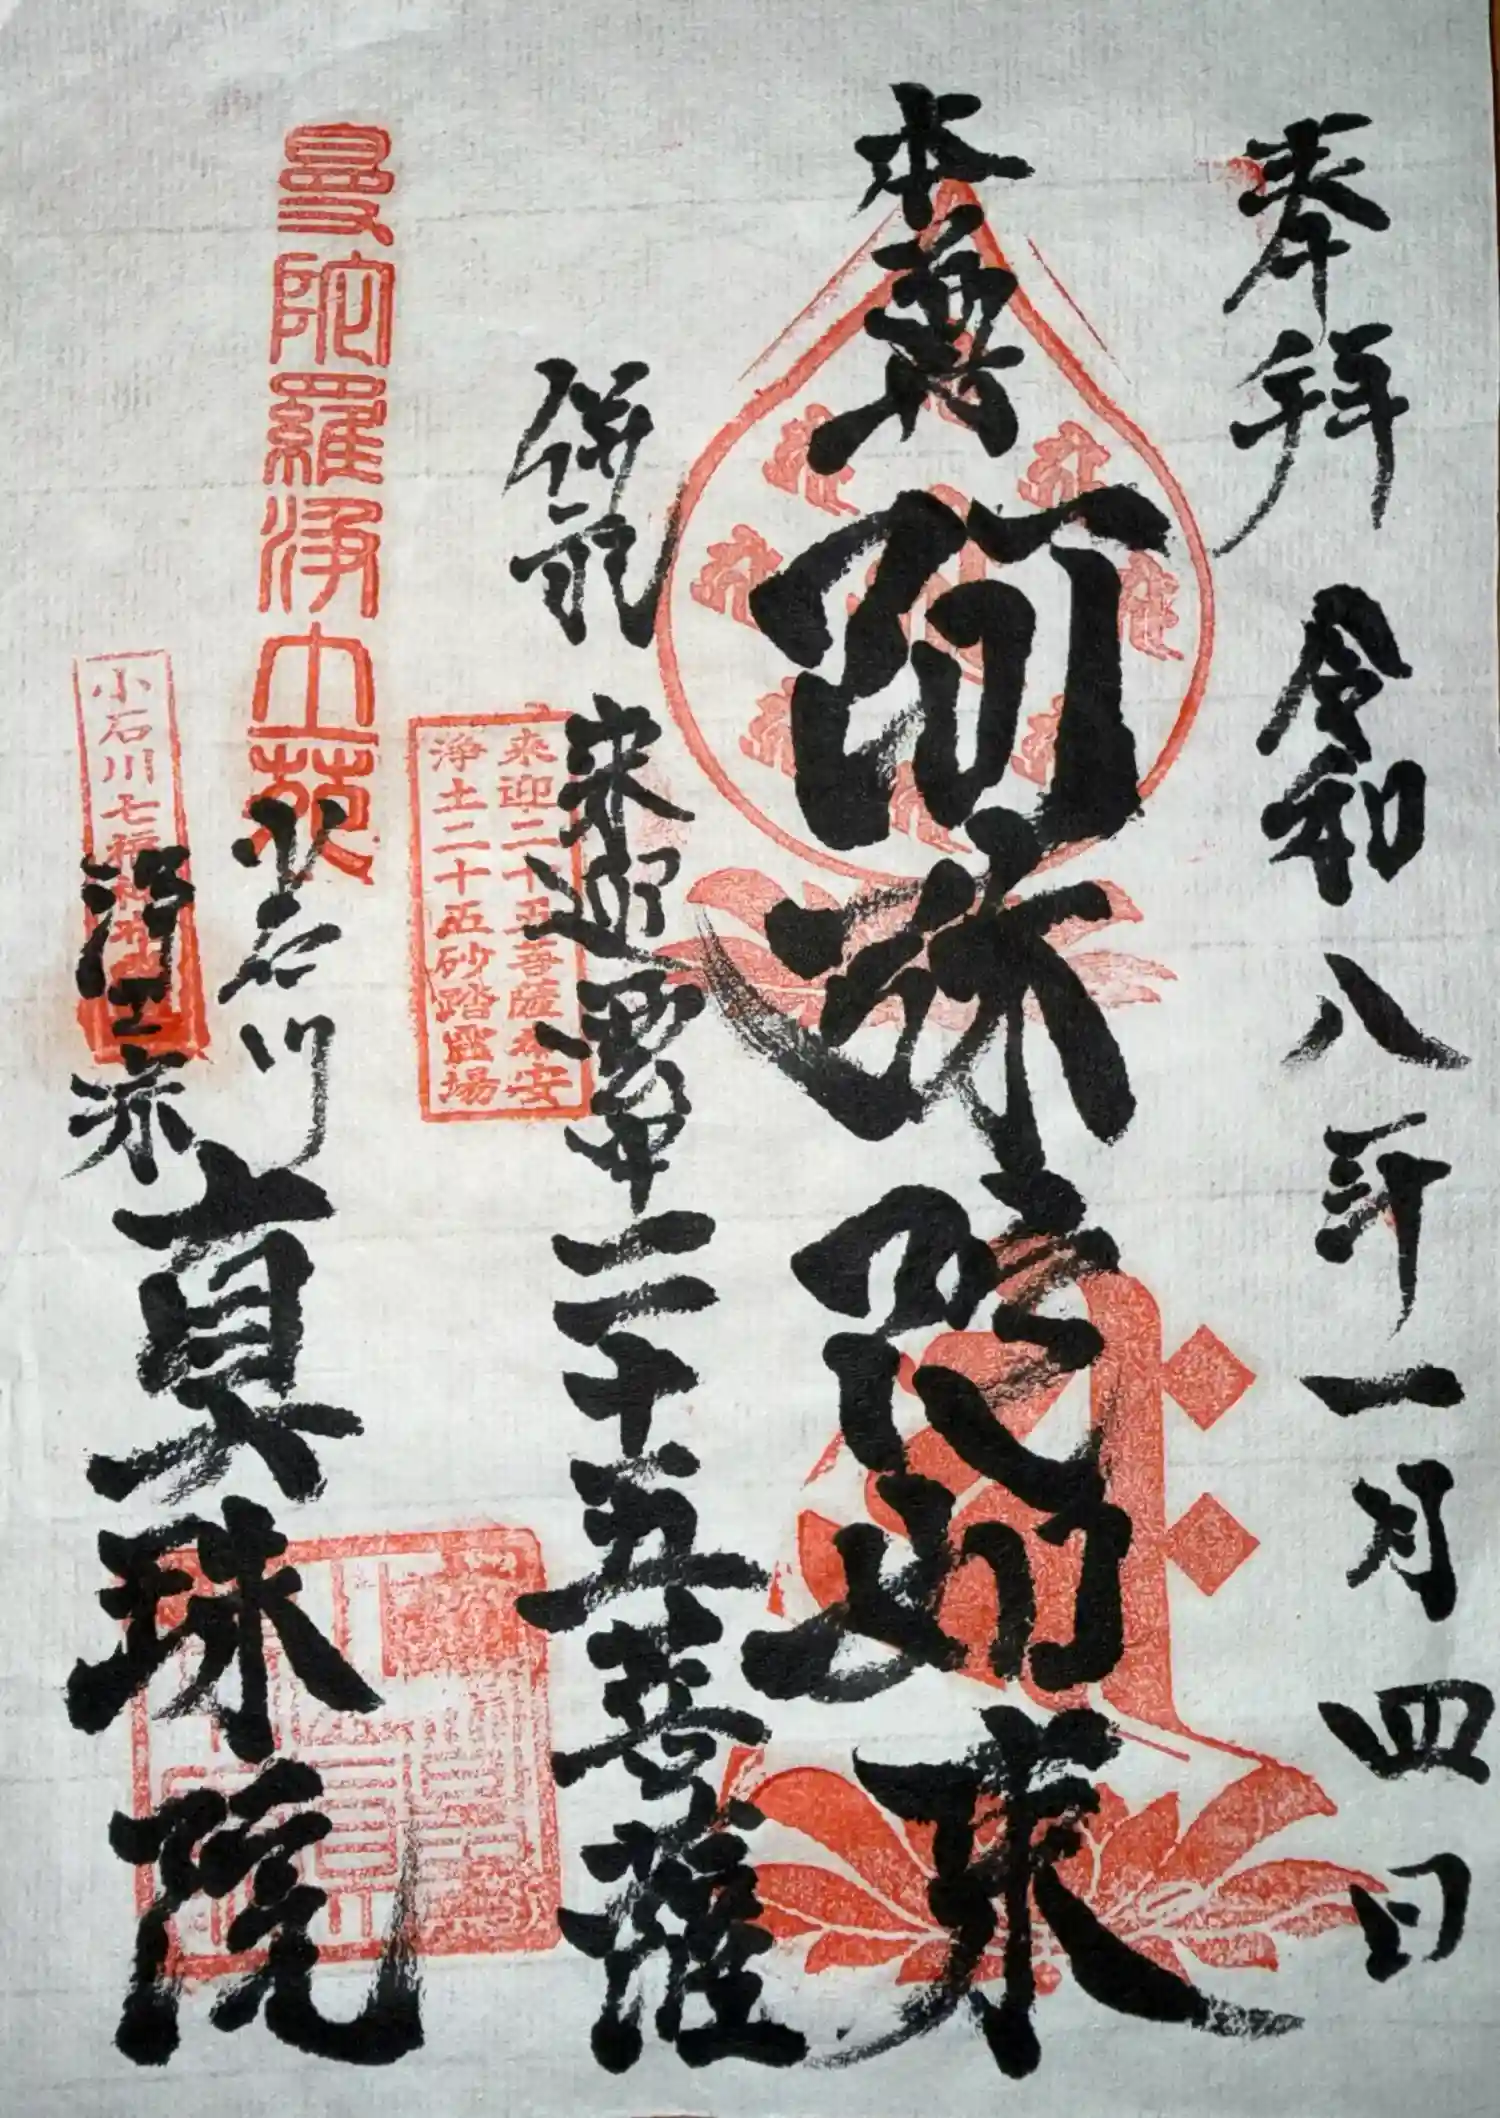 奉拝 令和八年一月四日
本尊 阿弥陀如来
来迎聖衆二十五菩薩
来迎二十五菩薩奉安
浄土二十五砂踏霊場
曼陀羅浄土苑
小石川
浄土宗
真珠院
小石川七福